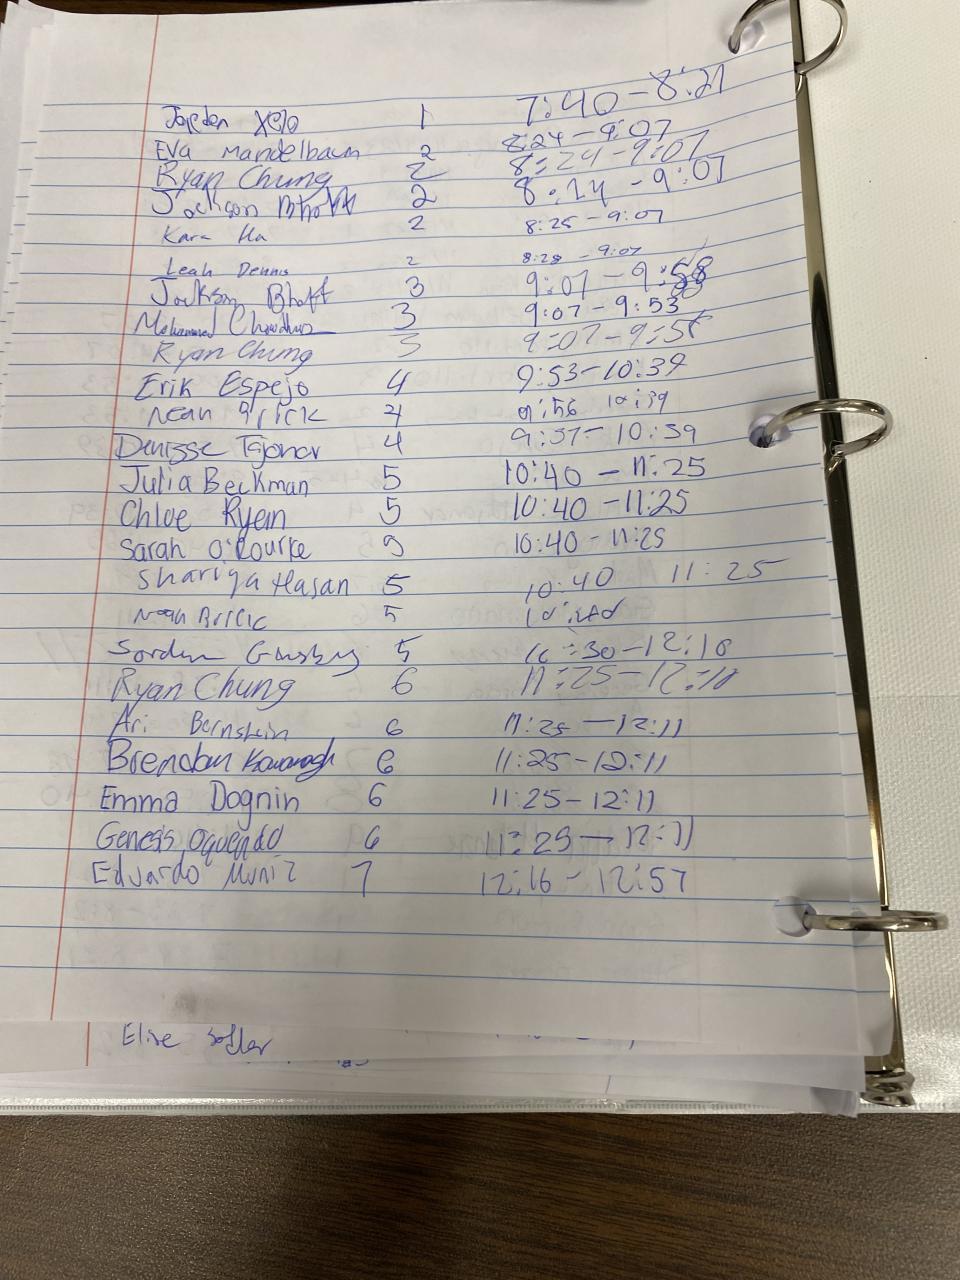 Jorden 1 7:40-8:21
Eva Mandelbaum 2 8:24-9:07
Ryan Chung 2 8:24-9:07
Jackson Bhatt 2 8:24-9:07
Kara Ha 2 8:25-9:07
Leah Dennis 2 8:28-9:07
Jackson Bhatt 3 9:07-9:58
Mohammed Chowdhury 3 9:07-9:53
Ryan Chung 3 9:07-9:56
Erik Espejo 4 9:53-10:39
4 9:56 10:39
Denisse 4 9:57-10:39
Julia Beckman 5 10:40-11:25
Chloe Ryan 5 10:40-11:25
Sarah O'Rourke 5 10:40-11:25
Shariya Hasan 5 10:40 11:25
Noah 5 10:40
5
Ryan Chung 6 11:25-12:10
Ari Bernstein 6 11:25-12:11
Brendan Kavanagh 6 11:25-12:11
Emma Dognin 6 11:25-12:11
Genesis Oquendo 6 11:29-12:11
Eduardo Muniz 7 12:16-12:57
Elise